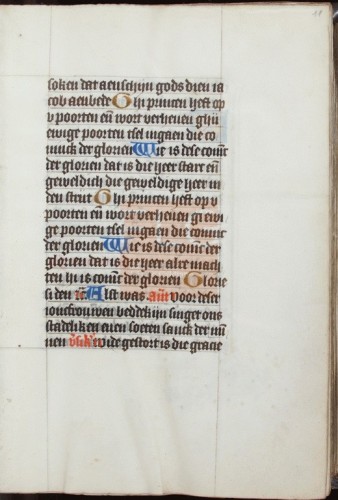 soken dat aenschijn gods dien ia
cob aenbede Ghi princen heft op
v poorten en̄ wort verheuen ghi
ewige poorten ēsel ingaen die co
ninck der glorien Wie is dese coninc
der glorien dat is die heer starc en̄
geweldich die geweldige heer in
den strut Ghi princen heft op v
poorten en̄ wort verheuen ghi ewi
ge poorten ēsel ingaen die coninc
der glorien Wie is dese coninc der
glorien dat is die heer alre mach
ten hi is coninc der glorien Glorie
si den Alst was ant voor deser
ioncfrouwen beddekijn singet ons
stadeliken euen soeten sanck der min
nen v̄sik̄ Wide gestort is die gracie